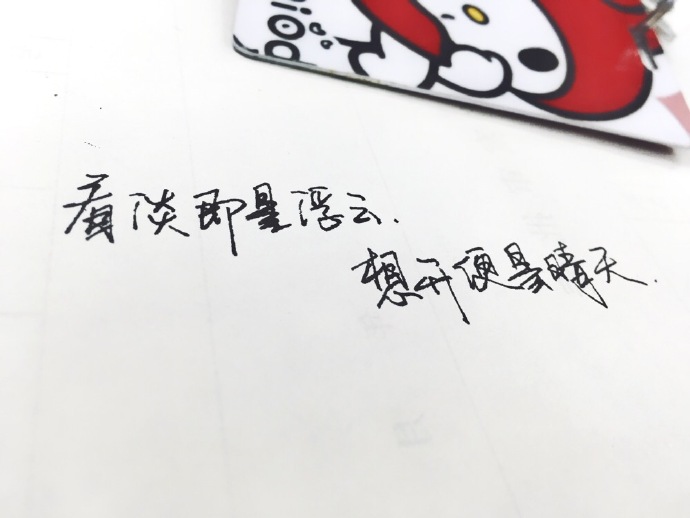 piod
看淡即是浮云.
想开便是晴天.